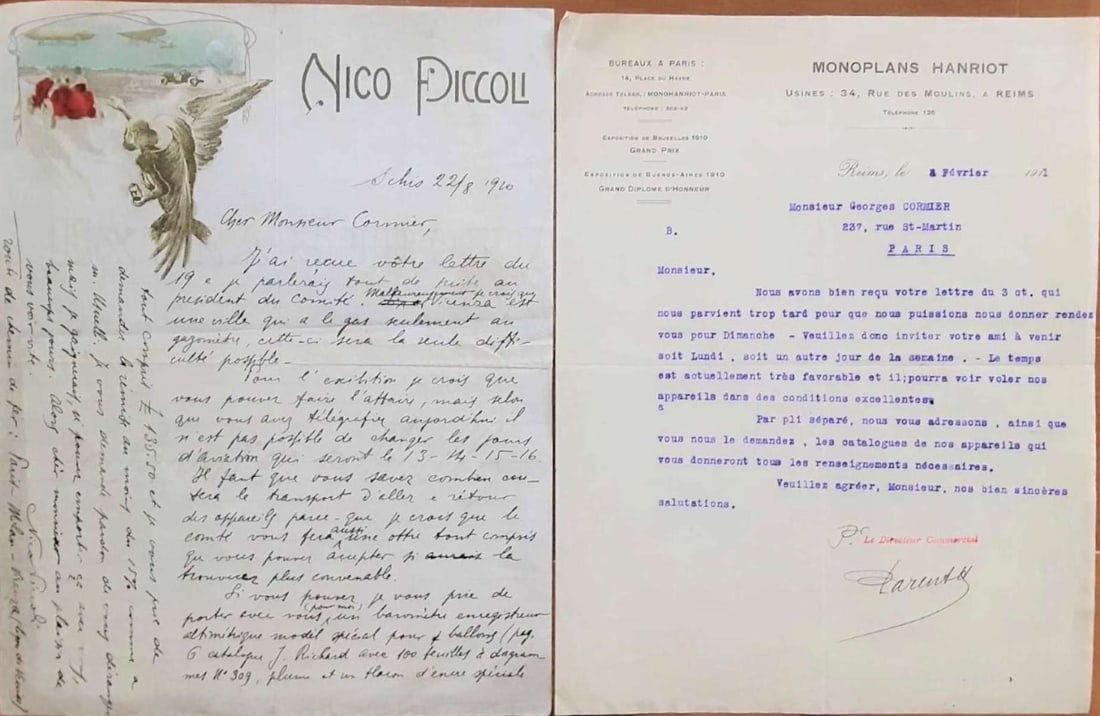 NICO PICCOLI
Schio 22/8 1910
Cher Monsieur Cormier,
J'ai reçue vôtre lettre du
19 e je parlerais tout de suite au
président du Comité. Malheureusement je crois que
Vicenza est
une ville qui a le gas seulement au
gazomètre, cette-ci sera la seule diffi-
culté possible -
Pour l'exibition je crois que
vous pouvez faire l'affaire, mais selon
que vous avez télégrafiée aujourdhui il
n'est pas possible de changer les jours
d'aviation qui seront le 13-14-15-16.
Il faut que vous savez combien cou-
tera le transport d'aller e rétour
des appareils parce-que je crois que le
comité vous fera aussi une offre tout compris
que vous pouvez accepter si la
trouverez plus convenable.
Si vous pouvez je vous prie de
porter avec vous (pour moi) un baromètre enregistreur
altimétrique model spécial pour ballons (pag.
6 catalogue J. Richard avec 100 feuilles à diagram-
mes N° 309, plume et un flacon d'encre spéciale
tout compris 135.50 et je vous prie de
demander la remise au moins du 15% comme a
m. Usuelli. Je vous demande pardon de vous déranger
mais je gagnerais si pouvez emporter ça avec vous,
beaucoup jours. Alors cher monsieur au plaisir de
vous voir vite.
Nico Piccoli
route de chemin de fer: Paris-Milan-Vicenza
BUREAUX A PARIS :
14, PLACE DU HAVRE
ADRESSE TÉLÉGR. : MONOHANRIOT-PARIS
EXPOSITION DE BRUXELLES 1910
GRAND PRIX
EXPOSITION DE BUENOS-AIRES 1910
GRAND DIPLOME D'HONNEUR
MONOPLANS HANRIOT
USINES : 34, RUE DES MOULINS, A REIMS
TÉLÉPHONE 125
Reims, le 4 Février 1911
Monsieur Georges CORMIER
237, rue St-Martin
PARIS
B.
Monsieur,
Nous avons bien reçu votre lettre du 3 ct. qui
nous parvient trop tard pour que nous puissions nous donner rendez
vous pour Dimanche - Veuillez donc inviter votre ami à venir
soit Lundi , soit un autre jour de la semaine . - Le temps
est actuellement très favorable et il;pourra voir voler nos
appareils dans des conditions excellentes.
Par pli séparé, nous vous adressons , ainsi que
vous nous le demandez , les catalogues de nos appareils qui
vous donneront tous les renseignements nécessaires.
Veuillez agréer, Monsieur, nos bien sincères
salutations.
Pr Le Directeur Commercial